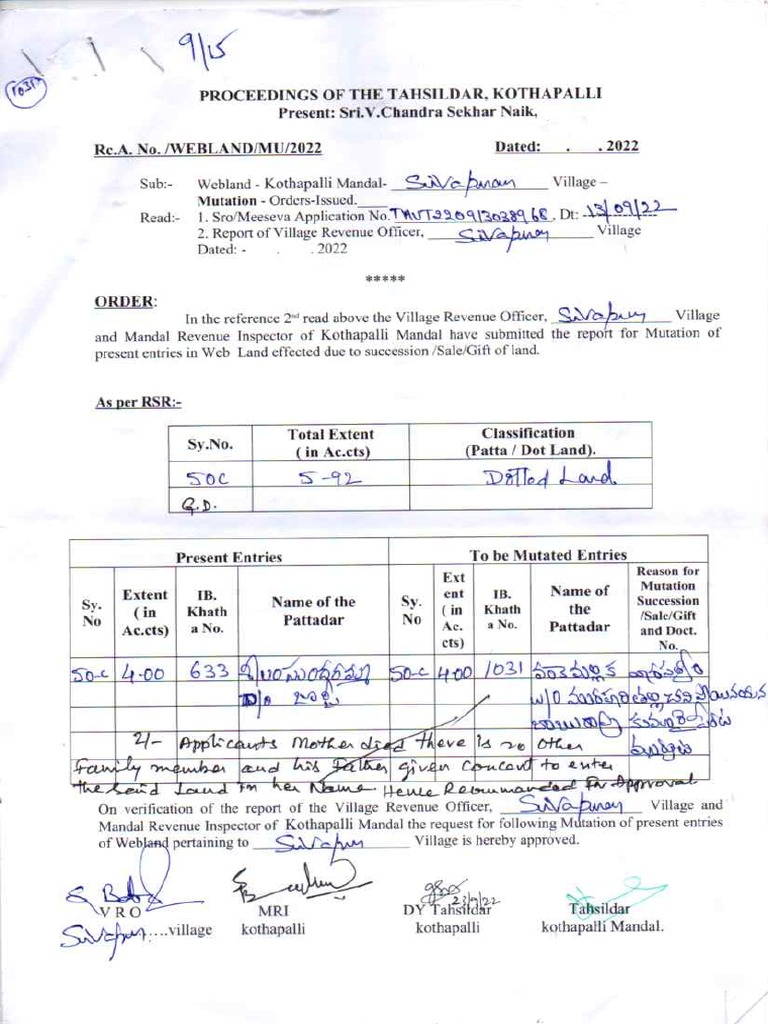 9/15
1031
PROCEEDINGS OF THE TAHSILDAR, KOTHAPALLI
Present: Sri.V.Chandra Sekhar Naik,
Rc.A. No. /WEBLAND/MU/2022 Dated: . . 2022
Sub:- Webland - Kothapalli Mandal- Sivapuram Village –
Mutation - Orders-Issued.
Read:- 1. Sro/Meeseva Application No. TMUT220913038968. Dt: 13/09/22
2. Report of Village Revenue Officer, Sivapuram Village
Dated: - . . 2022
*****
ORDER:
In the reference 2nd read above the Village Revenue Officer, Sivapuram Village
and Mandal Revenue Inspector of Kothapalli Mandal have submitted the report for Mutation of
present entries in Web Land effected due to succession /Sale/Gift of land.
As per RSR:-
Sy.No. Total Extent ( in Ac.cts) Classification (Patta / Dot Land).
50C 5-92 Dotted Land.
G.D.
Present Entries To be Mutated Entries
Sy. No Extent ( in Ac.cts) IB. Khath a No. Name of the Pattadar Sy. No Ext ent ( in Ac. cts) IB. Khath a No. Name of the Pattadar Reason for Mutation Succession /Sale/Gift and Doct. No.
50-C 4-00 633 50-C 4-00 1031
D/o W/O
2/- Applicants Mother died there is no other
Family member and his Father given concent to enter
the said Land in her Name Hence Recommanded for Approval
On verification of the report of the Village Revenue Officer, Sivapuram Village and
Mandal Revenue Inspector of Kothapalli Mandal the request for following Mutation of present entries
of Webland pertaining to Sivapuram Village is hereby approved.
23/9/22
V R O MRI DY Tahsildar Tahsildar
Sivapuram ....village kothapalli kothapalli kothapalli Mandal.